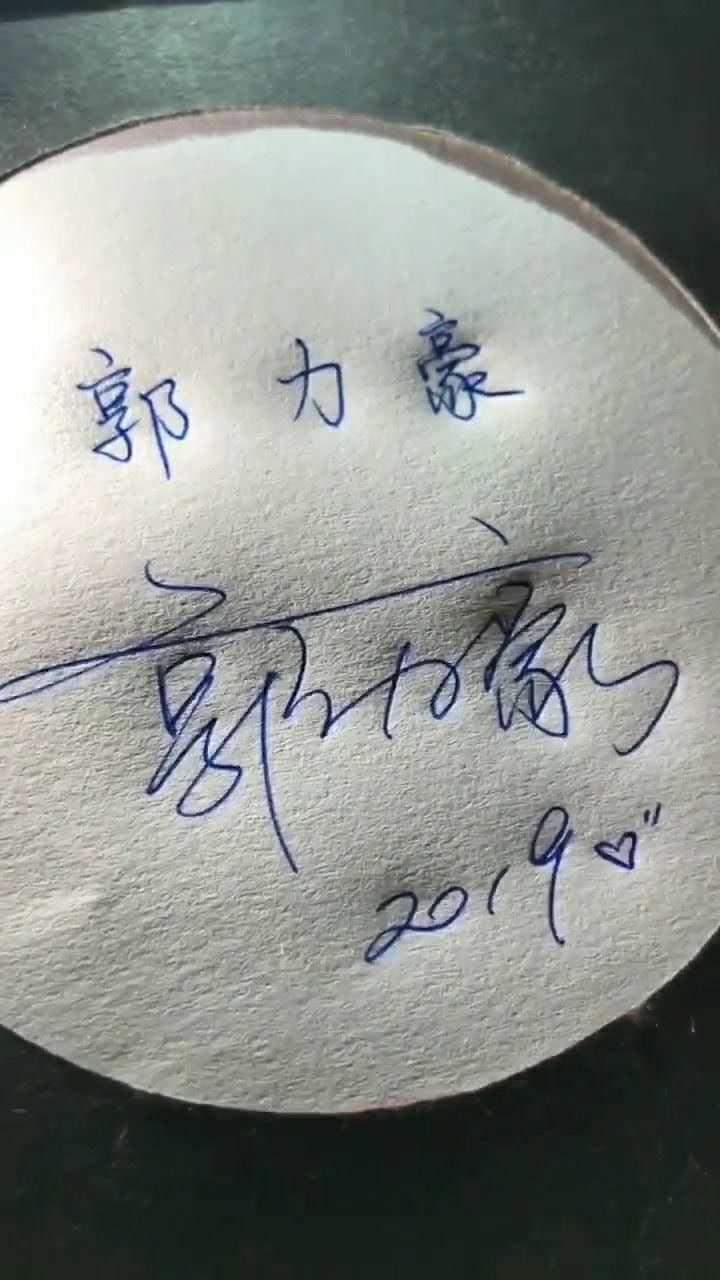 郭力豪
郭力豪
2019♡"